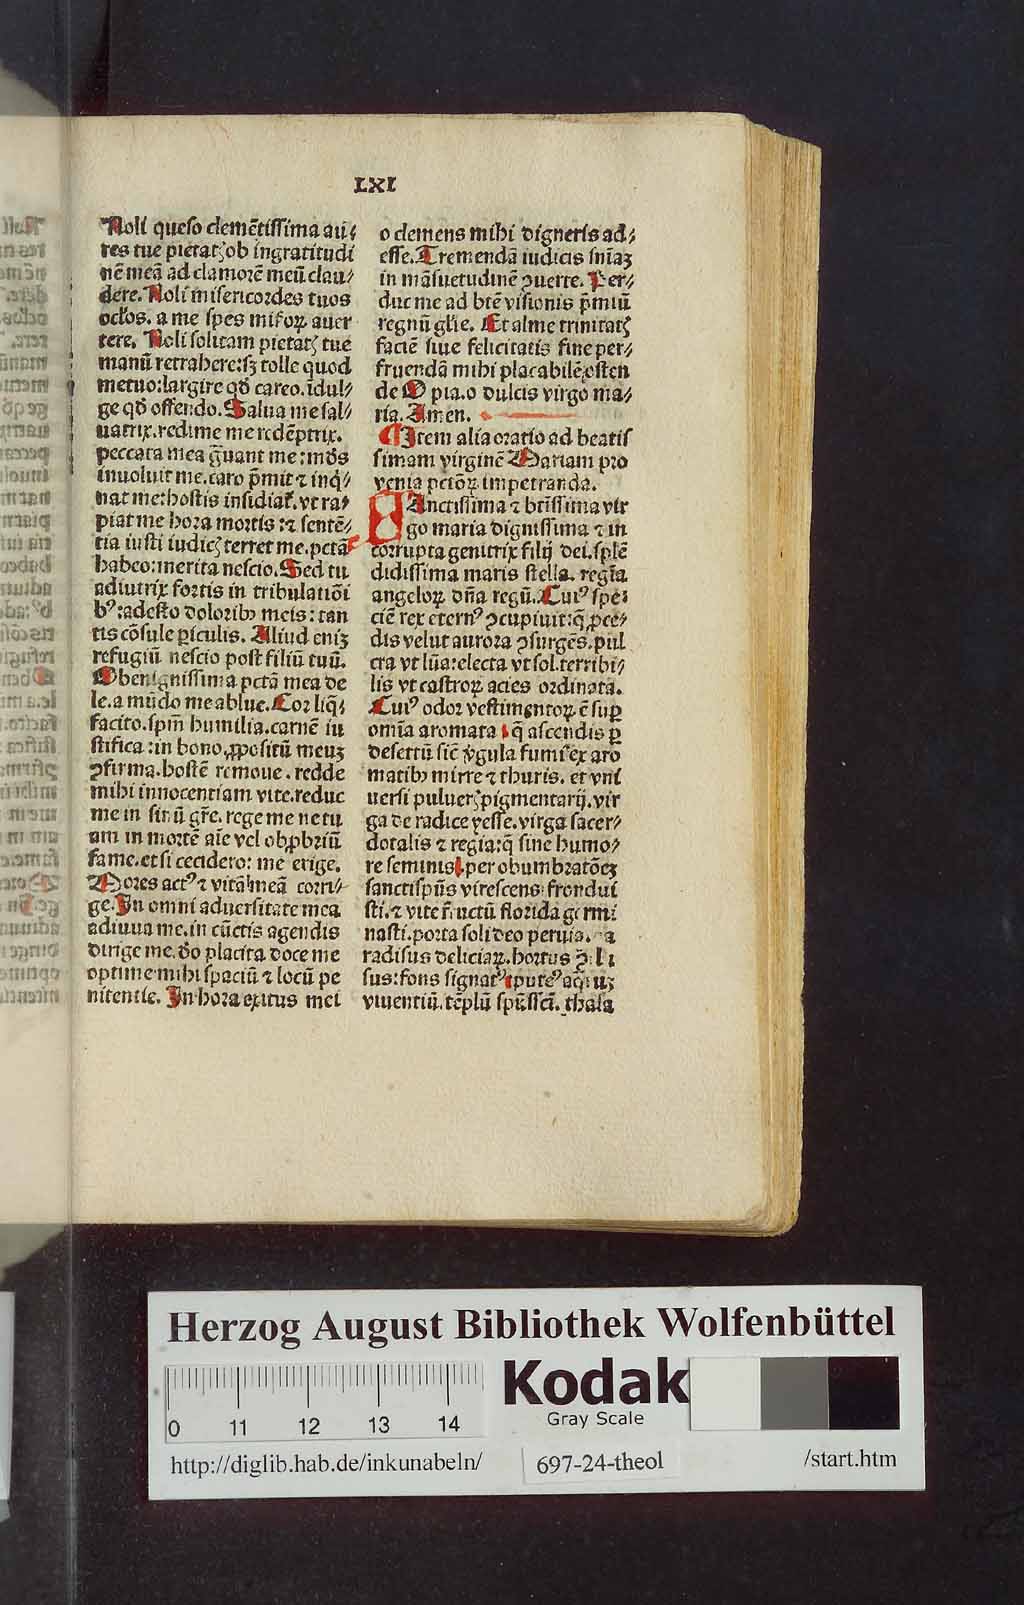 LXI
Noli queso clemẽtissima aũ⸗
res tue pietatꝭ ob ingratitudi
nẽ meã ad clamorẽ meũ clau⸗
dere. Noli misericordes tuos
oclos. a me spes miſoꝝ auer
tere. Noli solitam pietatꝭ tue
manũ retrahere: sꝫ tolle quod
metuo: largire qđ careo. ĩdul⸗
ge qđ offendo. Salua me sal⸗
uatrix. redime me redẽptrix.
peccata mea grauant me: mũds
inuoluit me. caro p̃mit ⁊ inq̃⸗
nat me: hostis insidiať. vt ra⸗
piat me hora mortis: ⁊ sentẽ⸗
tia iusti iudicꝭ terret me. pctã
habeo: merita nescio. Sed tu
adiutrix fortis in tribulatiõi
bꝰ: adesto doloribꝫ meis: tan
tis cõsule ꝑiculis. Aliud enĩꝫ
refugiũ nescio post filiũ tuũ.
O benignissima pctã mea de
le. a mũdo me ablue. Cor liq̃⸗
facito. spm̃ humilia. carnẽ iu
stifica: in bono ꝓpositũ meuꝫ
ꝯfirma. hostẽ remoue. redde
mihi innocentiam vite. reduc
me in sinũ gr̃e. rege me ne tu
am in mortẽ aĩe vel obꝓbriũ
fame. et si cecidero: me erige.
Mores actꝰ ⁊ vitã meã corri⸗
ge. In omni aduersitate mea
adiuua me. in cũctis agendis
dirige me. q̃o placita doce me
optime mihi spaciũ ⁊ locũ pe
nitentie. In hora exitus mei
o clemens mihi digneris ad⸗
esse. Tremendã iudicis sñiaꝫ
in mãsuetudinẽ ꝯuerte. Per⸗
duc me ad btẽ visionis p̃miũ
regnũ glie. Et alme trinitatꝭ
faciẽ siue felicitatis sine per⸗
fruendã mihi placabilẽ osten
de O pia. o dulcis virgo ma⸗
ria. Amen.
Item alia oratio ad beatis
simam virginẽ Mariam pro
venia pctõꝝ impetranda.
SAnctissima ⁊ btĩssima vir
go maria dignissima ⁊ in
corrupta genitrix filij dei. splẽ
didissima maris stella. regĩa
angeloꝝ dña regũ. Cuiꝰ spe⸗
ciẽ rex eternꝰ ꝯcupiuit: q̃ ꝓce⸗
dis velut aurora ꝯsurgẽs. pul
cra vt lũa: electa vt sol. terribi⸗
lis vt castroꝝ acies ordinata.
Cuiꝰ odor vestimentoꝝ ẽ sup̱
omĩa aromata q̃ ascendis ꝑ
desertũ sič ṽgula fumi ex aro
matibꝫ mirre ⁊ thuris. et vni
uersi pulueꝭ pigmentarij. vir
ga de radice yesse. virga sacer⸗
dotalis ⁊ regia: q̃ sine humo⸗
re seminis per obumbratõeꝫ
sanctispũs virescens: frondui
sti. ⁊ vite fructũ florida germi
nasti. porta soli deo peruia. pa
radisus deliciaꝝ. hortus ꝯclu
sus: fons signatꝰ puteꝰ aq̃ruꝫ
viuentiũ. tẽplũ spũssčĩ. thala
Herzog August Bibliothek Wolfenbüttel
0 11 12 13 14
Kodak
Gray Scale
http://diglib.hab.de/inkunabeln/
697-24-theol
/start.htm